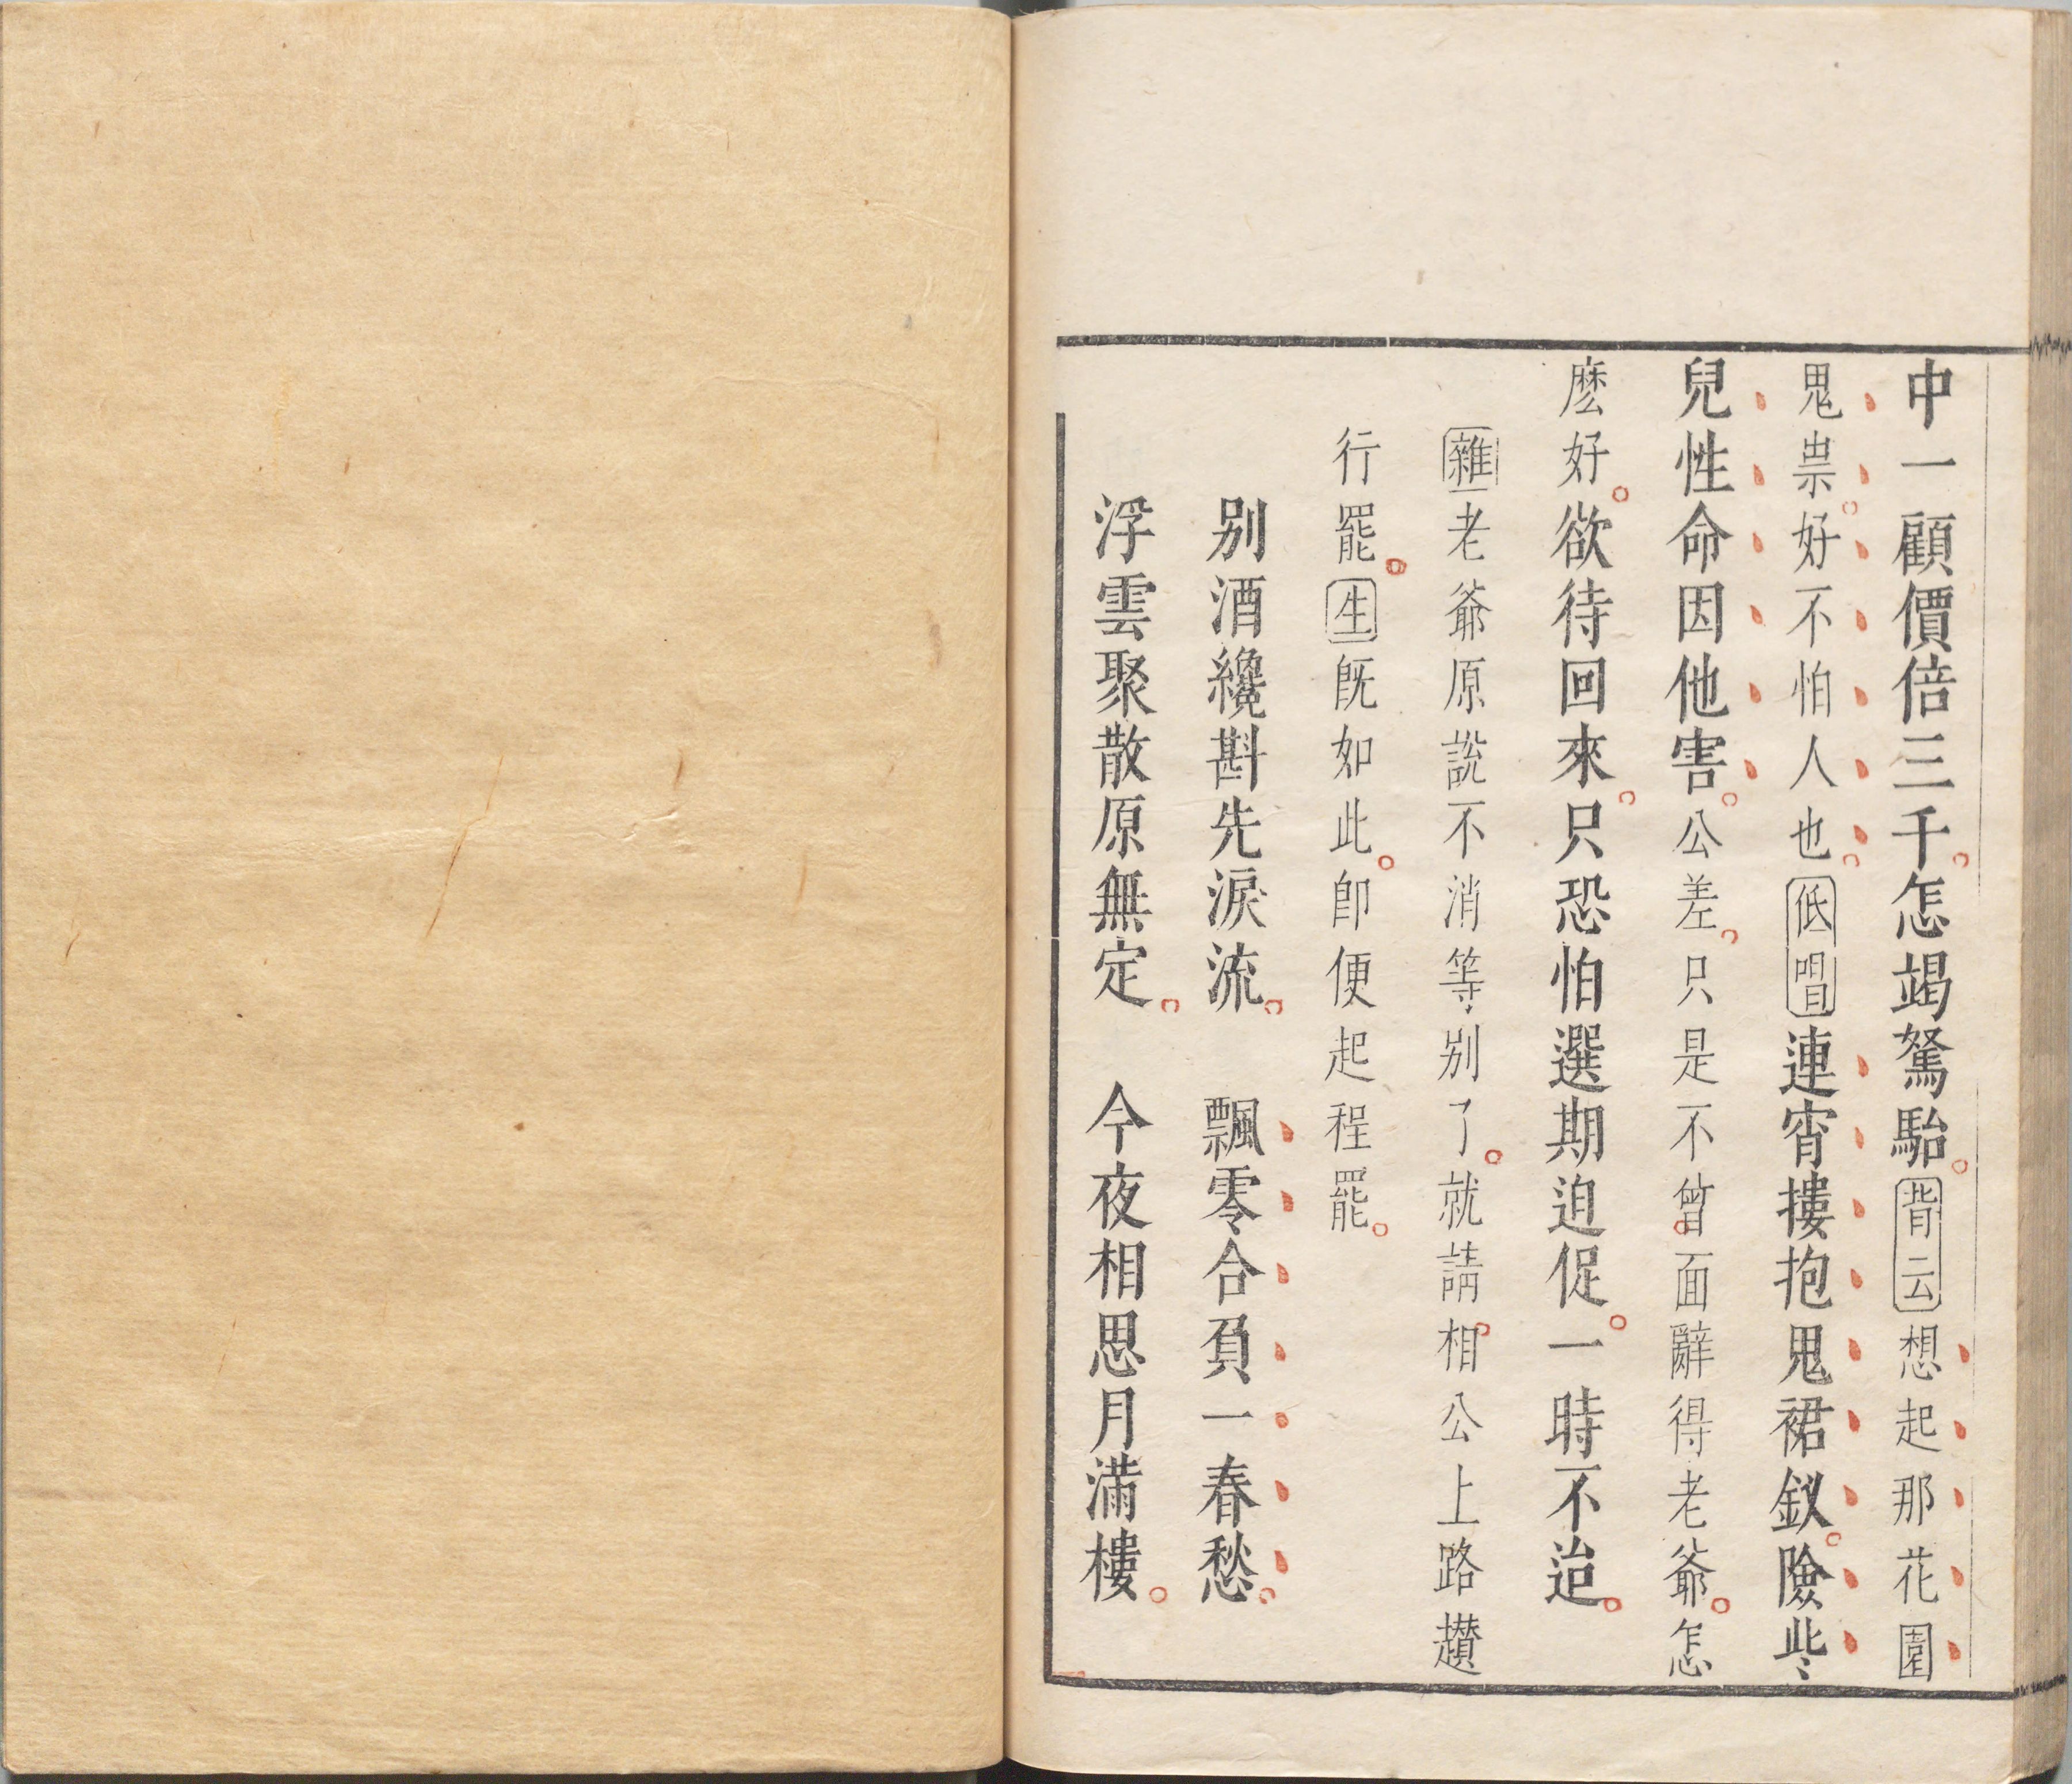 中一顧價倍三千怎竭駑駘背云想起那花園
鬼祟好不怕人也低唱連宵摟抱鬼裙釵險些
兒性命因他害公差只是不曾面辭得老爺怎
麽好欲待回來只恐怕選期迫促一時不迨
雜老爺原說不消等別了就請相公上路趲
行罷生旣如此卽便起程罷
別酒纔斟先淚流　飄零合負一春愁
浮雲聚散原無定　今夜相思月滿樓